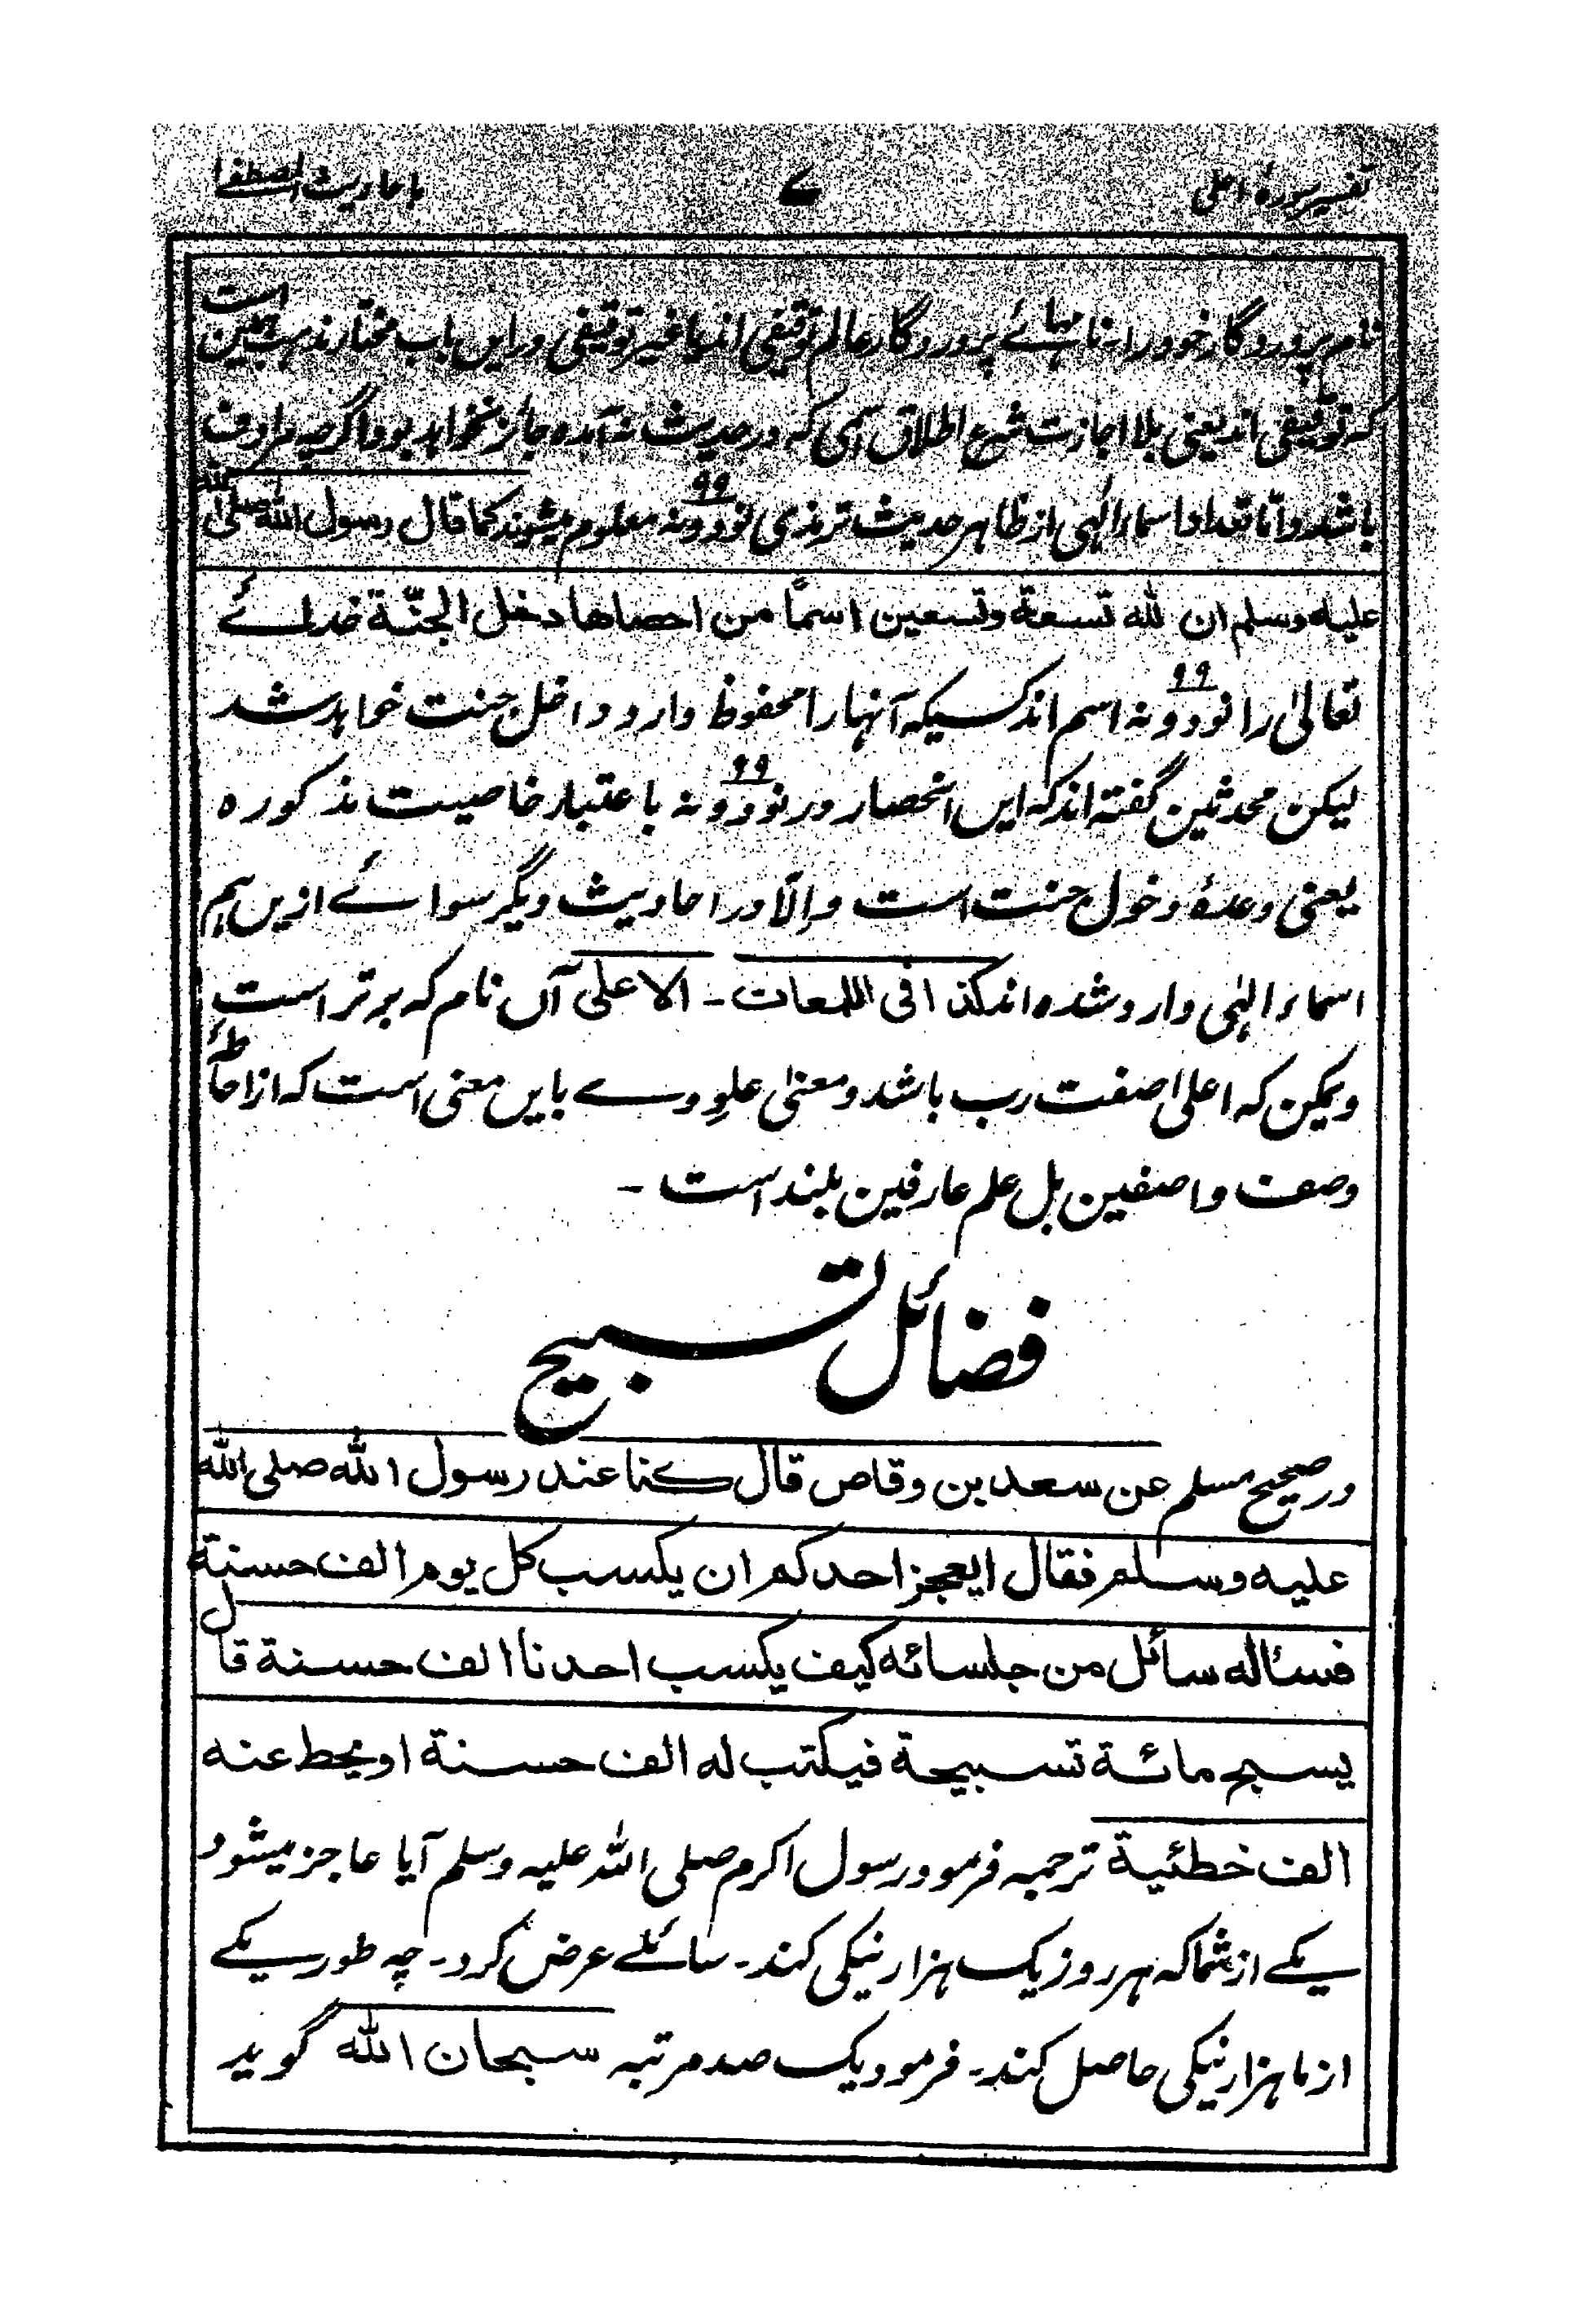 تفسیر سورهٔ اعلی ۷ باحادیث المصطفیٰ
نام پروردگار خود را۔ نامہائے پروردگار عالم توقیفی اند یا غیر توقیفی درایں باب مختار مذہب ہمین است
کہ توقیفی اند یعنی بلا اجازت شرع اطلاق اسمی کہ در حدیث نہ آمدہ جائز نخواہد بود اگرچہ مرادف
باشد و اما تعداد اسماء الٰہی از ظاہر حدیث ترمذی نود و نہ ۹۹ معلوم میشوند کما قال رسول الله صلی الله
علیه وسلم ان لله تسعة وتسعین اسمًا من احصاها دخل الجنّة خدائے
تعالیٰ را نود و نہ ۹۹ اسم اند کسیکہ آنہا را محفوظ دارد داخل جنت خواہد شد
لیکن محدثین گفتہ اند کہ ایں انحصار در نود و نہ ۹۹ باعتبار خاصیت مذکورہ
یعنی وعدۂ دخول جنت است و اِلّا در احادیث دیگر سوائے ازیں ہم
اسماء الٰہی وارد شدہ اند کذا فی اللمعات۔ الاعلی آں نام کہ برتر است
و یمکن کہ اعلیٰ صفت رب باشد و معنیٰ علوِ وے بایں معنی است کہ از احاطۂ
وصف واصفین بل علم عارفین بلند است۔
فضائل تسبیح
در صحیح مسلم عن سعد بن وقاص قال کنا عند رسول الله صلی الله
علیه وسلم فقال ایعجز احدکم ان یکسب کل یوم الف حسنة
فسئاله سائل من جلسائه کیف یکسب احدنا الف حسنة قال
یسبح مائة تسبیحة فیکتب له الف حسنة او یحط عنه
الف خطئیة ترجمہ فرمود رسول اکرم صلی اللہ علیہ وسلم آیا عاجز میشود
یکے از شما کہ ہر روز یک ہزار نیکی کند۔ سائلے عرض کرد۔ چہ طور یکے
از ما ہزار نیکی حاصل کند۔ فرمود یک صد مرتبہ سبحان الله گوید